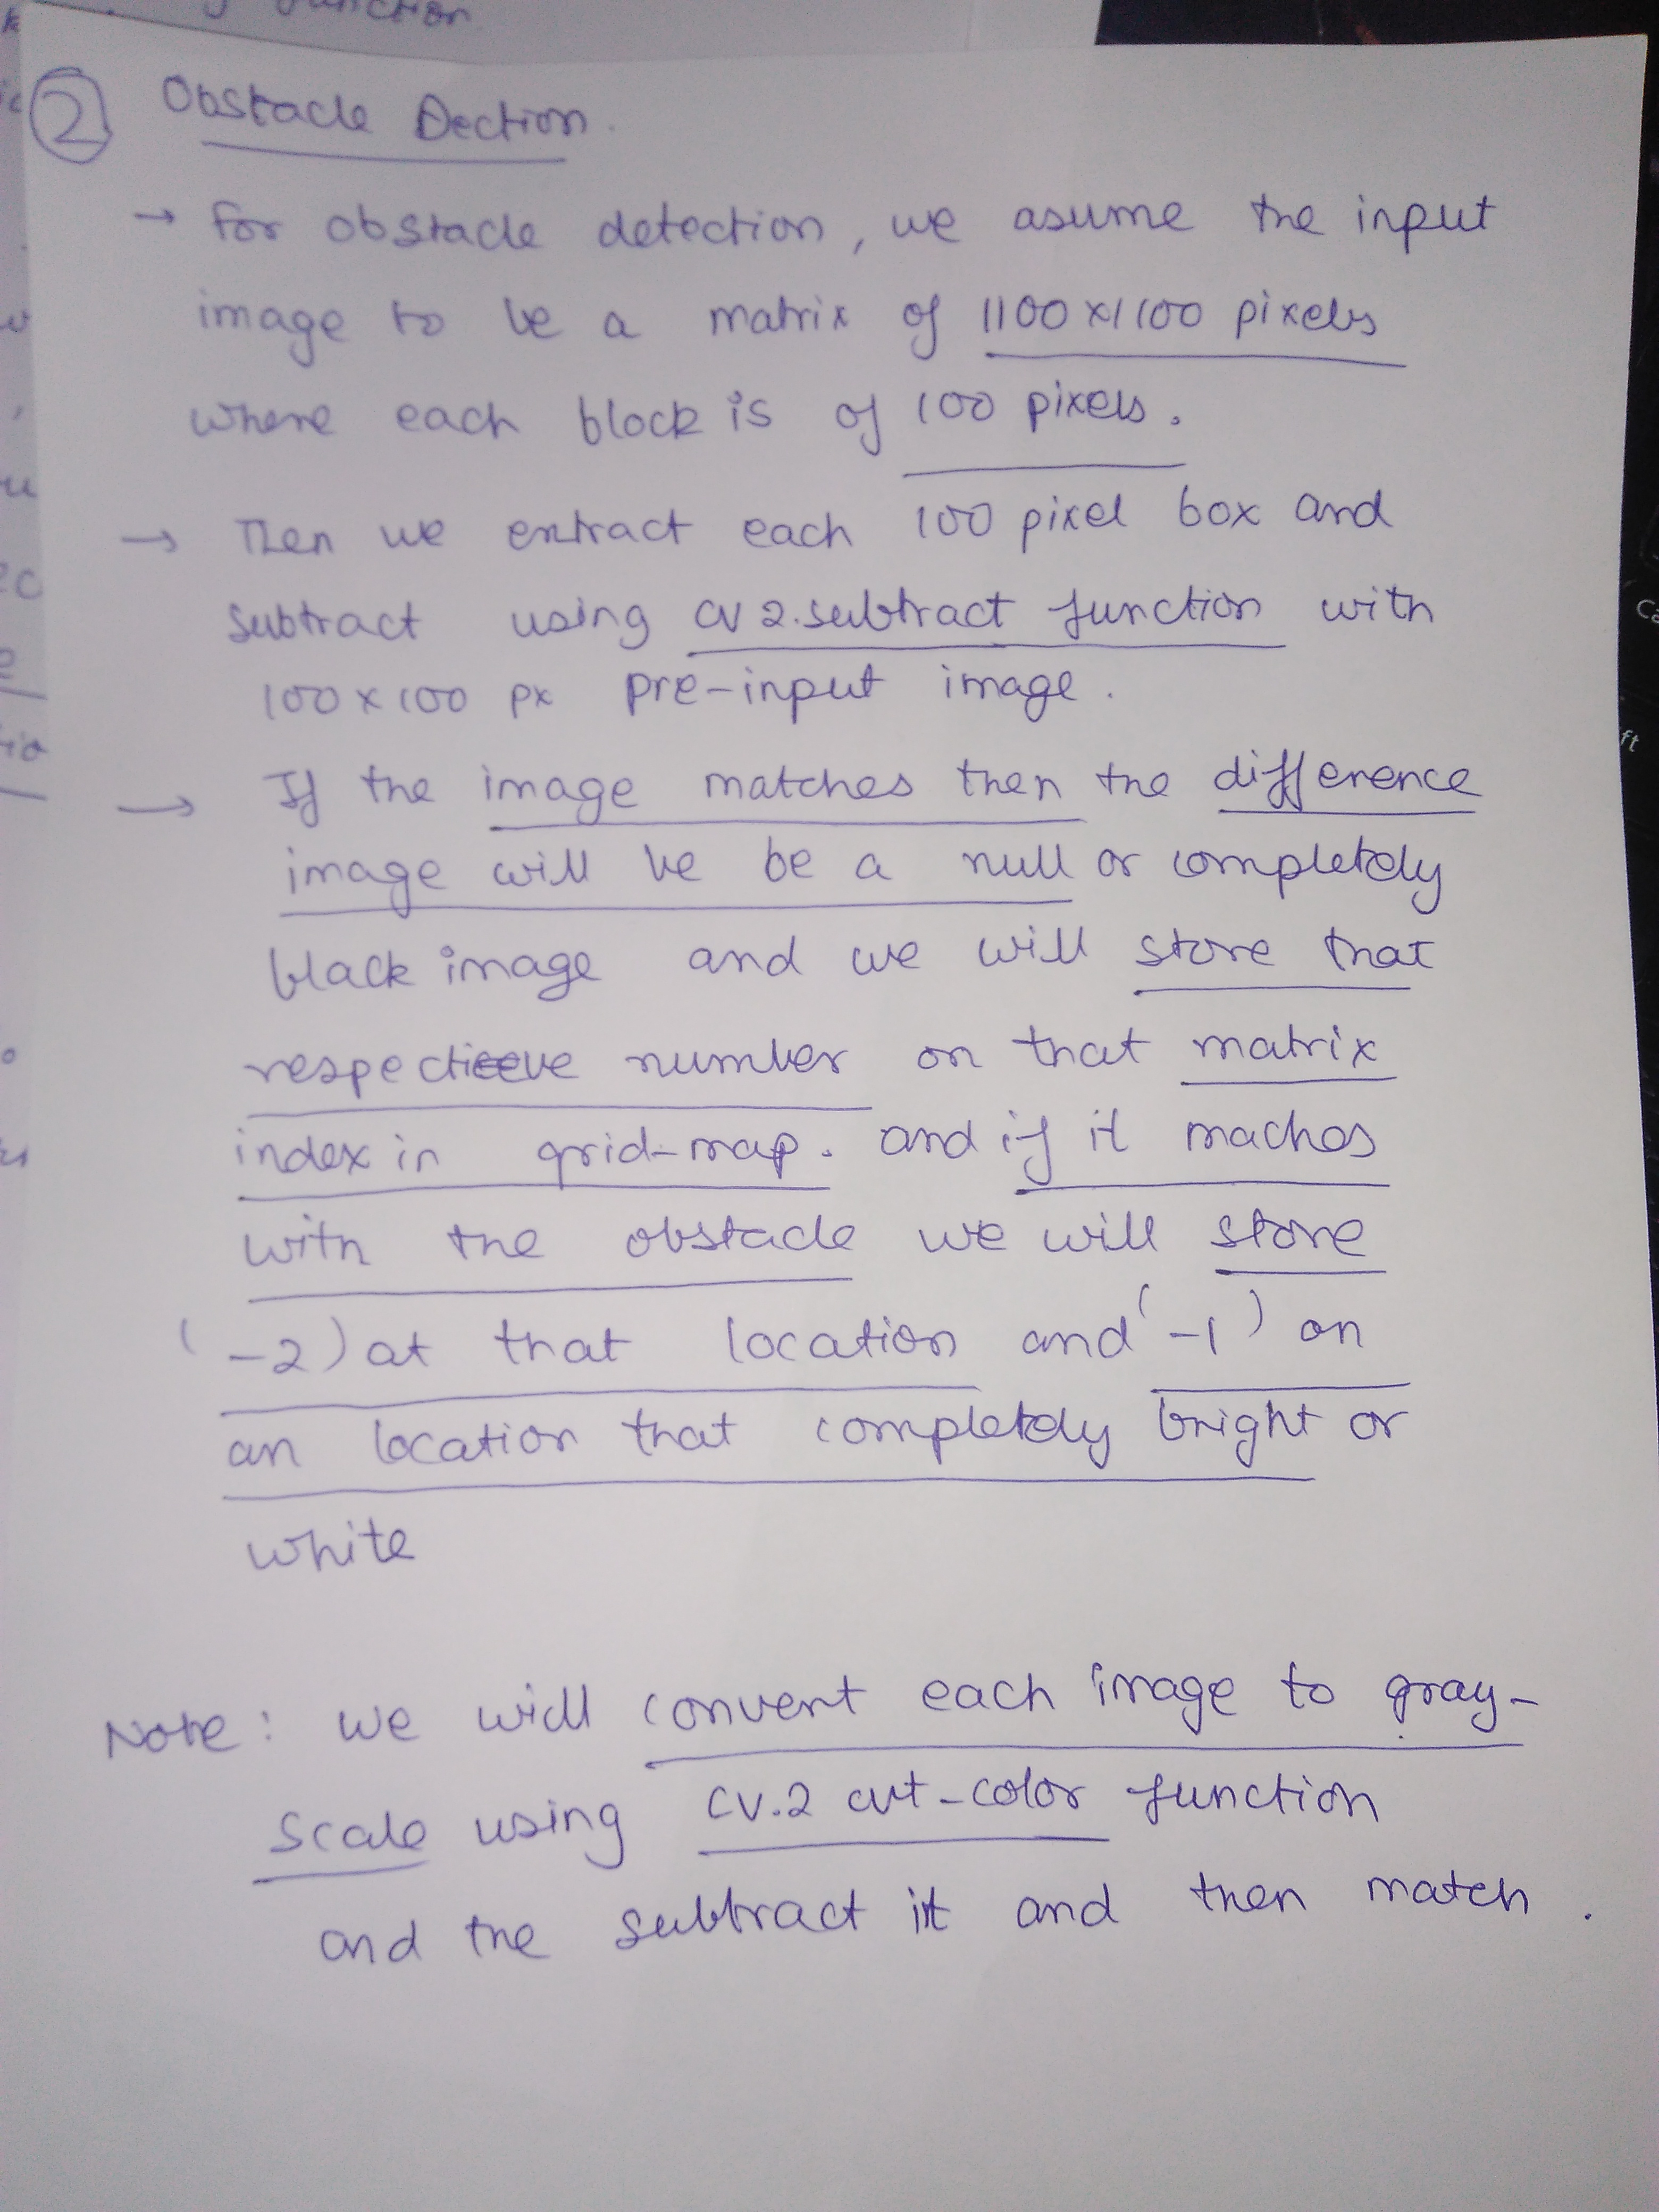 function
② Obstacle Dection.
→ For obstacle detection, we asume the input
image to be a matrix of 1100x1100 pixels
where each block is of 100 pixels.
→ Then we extract each 100 pixel box and
subtract using cv2.subtract function with
100x100 px pre-input image.
→ If the image matches then the difference
image will be be a null or completely
black image and we will store that
respective number on that matrix
index in grid-map. and if it maches
with the obstacle we will store
(-2) at that location and (-1) on
an location that completely bright or
white
Note: we will convert each image to gray-
scale using cv.2 cvt-color function
and the subtract it and then match.